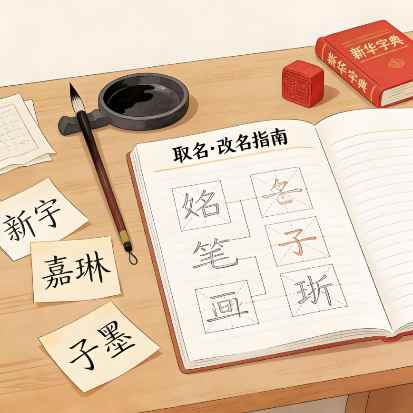 新华字典
新华字典
取名·改名指南
笔
子
新宇
嘉琳
子墨